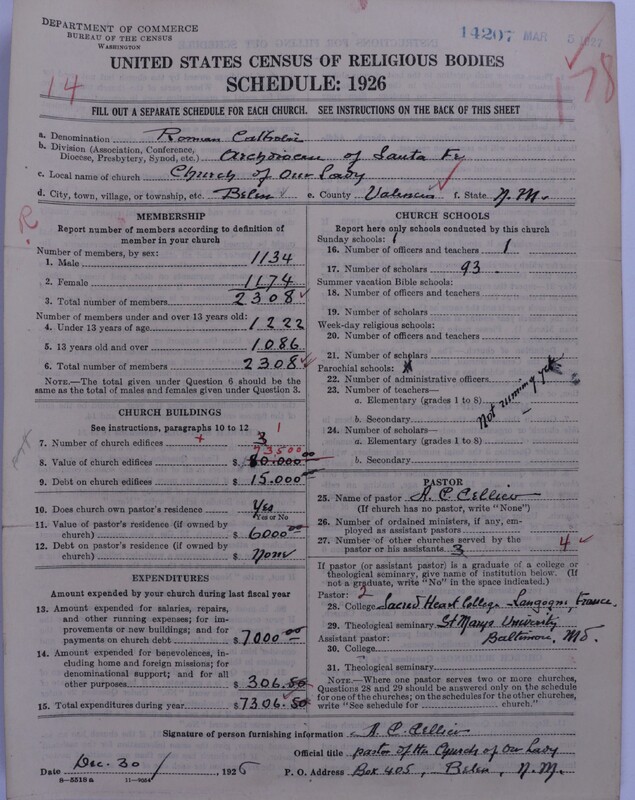 DEPARTMENT OF COMMERCE
BUREAU OF THE CENSUS
WASHINGTON
14207 MAR 5 1927
UNITED STATES CENSUS OF RELIGIOUS BODIES
SCHEDULE: 1926
14
178
FILL OUT A SEPARATE SCHEDULE FOR EACH CHURCH. SEE INSTRUCTIONS ON THE BACK OF THIS SHEET
a. Denomination Roman Catholic
b. Division (Association, Conference, Diocese, Presbytery, Synod, etc.) Archdiocese of Santa Fe
c. Local name of church Church of Our Lady
d. City, town, village, or township, etc. Belen e. County Valencia f. State N. M.
R
MEMBERSHIP
Report number of members according to definition of
member in your church
Number of members, by sex:
1. Male 1134
2. Female 1174
3. Total number of members 2308
Number of members under and over 13 years old:
4. Under 13 years of age 1222
5. 13 years old and over 1086
6. Total number of members 2308
NOTE.—The total given under Question 6 should be
same as the total of males and females given under Question 3.
CHURCH BUILDINGS
See instructions, paragraphs 10 to 12
7. Number of church edifices 3 1
73500
8. Value of church edifices $ 80.000 00
9. Debt on church edifices $ 15.000 00
10. Does church own pastor's residence Yes
Yes or No
11. Value of pastor's residence (if owned by
church) $ 6000 00
12. Debt on pastor's residence (if owned by
church) $ None
EXPENDITURES
Amount expended by your church during last fiscal year
13. Amount expended for salaries, repairs,
and other running expenses; for im-
provements or new buildings; and for
payments on church debt $ 7000 00
14. Amount expended for benevolences, in-
cluding home and foreign missions; for
denominational support; and for all
other purposes $ 306.50
15. Total expenditures during year $ 7306.50
CHURCH SCHOOLS
Report here only schools conducted by this church
Sunday schools: 1
16. Number of officers and teachers 1
17. Number of scholars 93
Summer vacation Bible schools:
18. Number of officers and teachers
19. Number of scholars
Week-day religious schools:
20. Number of officers and teachers
21. Number of scholars
Parochial schools:
22. Number of administrative officers
23. Number of teachers—
a. Elementary (grades 1 to 8)
b. Secondary
Not running yet
24. Number of scholars—
a. Elementary (grades 1 to 8)
b. Secondary
PASTOR
25. Name of pastor A. C. Cellier
(If church has no pastor, write "None")
26. Number of ordained ministers, if any, em-
ployed as assistant pastors
27. Number of other churches served by the
pastor or his assistants 3 4
If pastor (or assistant pastor) is a graduate of a college or
theological seminary, give name of institution below. (If
not a graduate, write "No" in the space indicated.)
Pastor: 2
28. College Sacred Heart College Langogni, France.
29. Theological seminary St Marys University
Baltimore, Md.
Assistant pastor:
30. College
31. Theological seminary
NOTE.—Where one pastor serves two or more churches,
Questions 28 and 29 should be answered only on the schedule
for one of the churches; on the schedules for the other churches,
write "See schedule for church."
Signature of person furnishing information A. C. Cellier
Official title pastor of the Church of Our Lady
Date Dec. 30, 1926 P. O. Address Box 405, Belen, N. M.
8—5518 a 11—9554